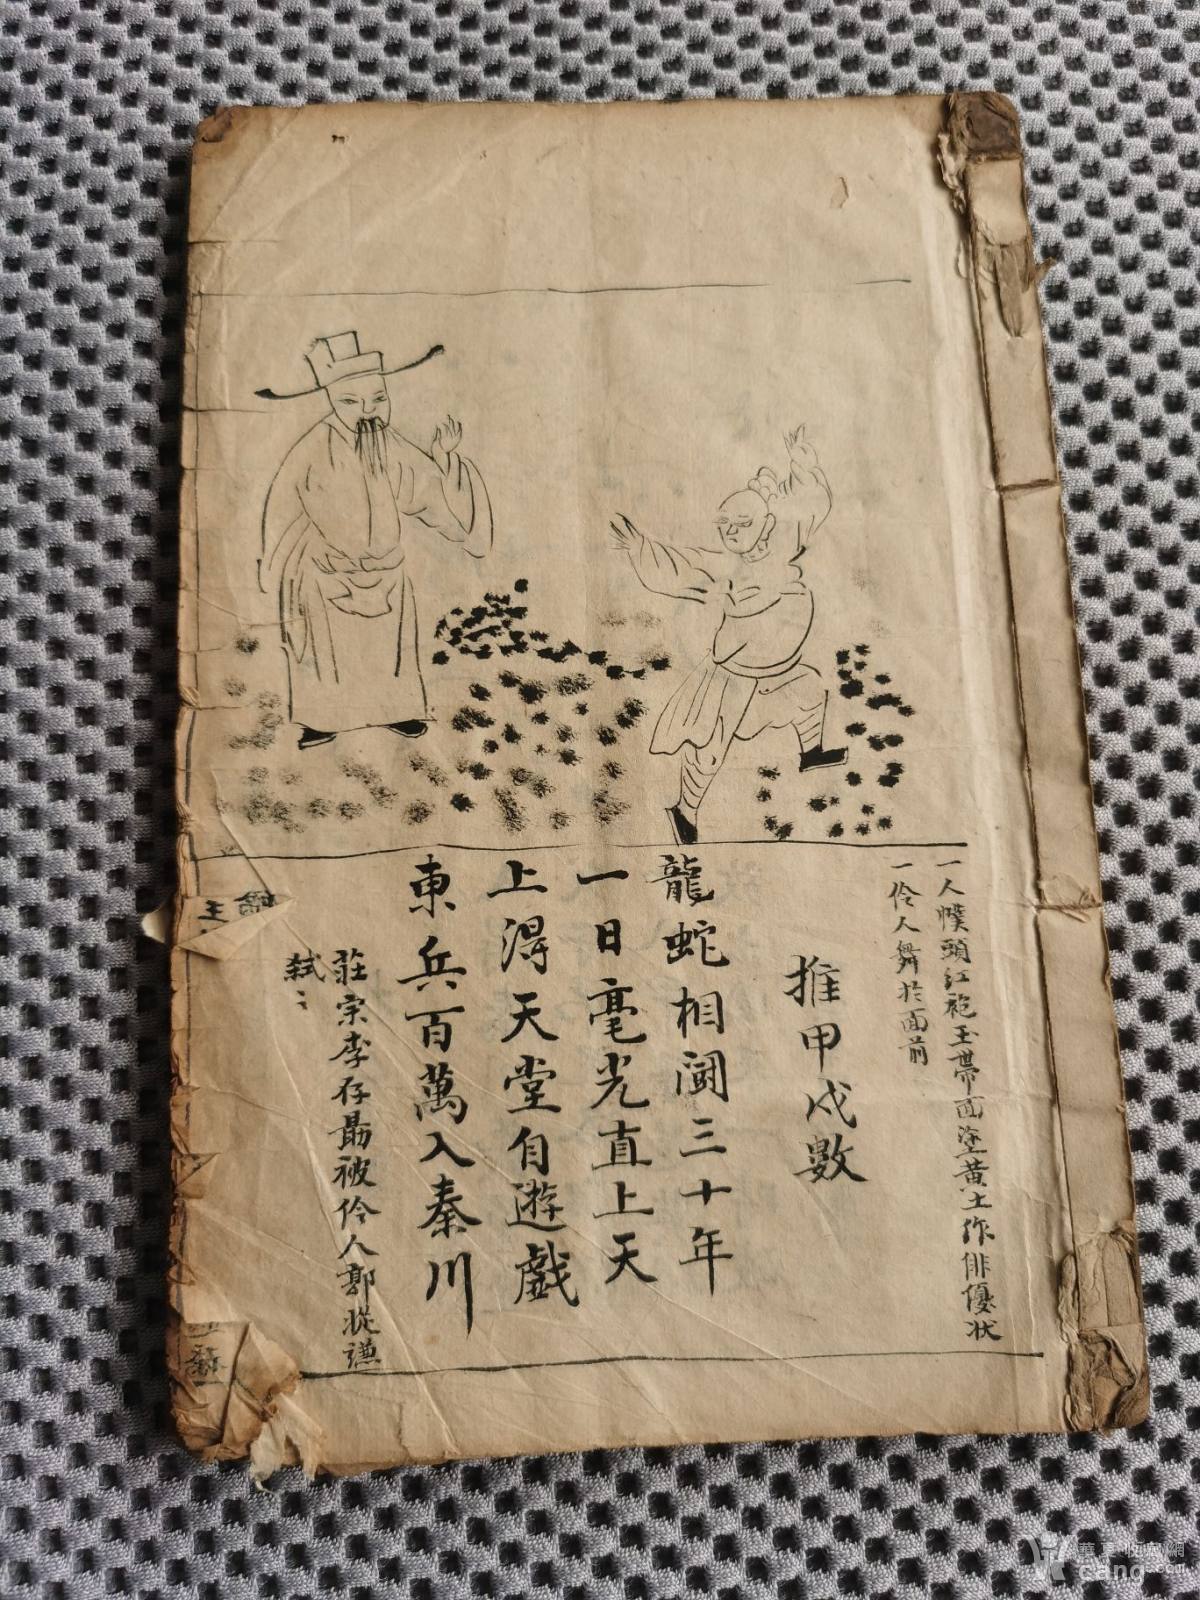 一人幞頭紅袍玉帶面塗黃土作俳優狀
一伶人舞於面前
推甲戌數
龍蛇相鬪三十年
一日毫光直上天
上淂天堂自遊戲
東兵百萬入秦川
莊宗李存勗被伶人郭從謙
弒之
王
華夏收藏網
cang.com